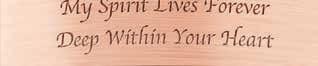 My Spirit Lives Forever
Deep Within Your Heart